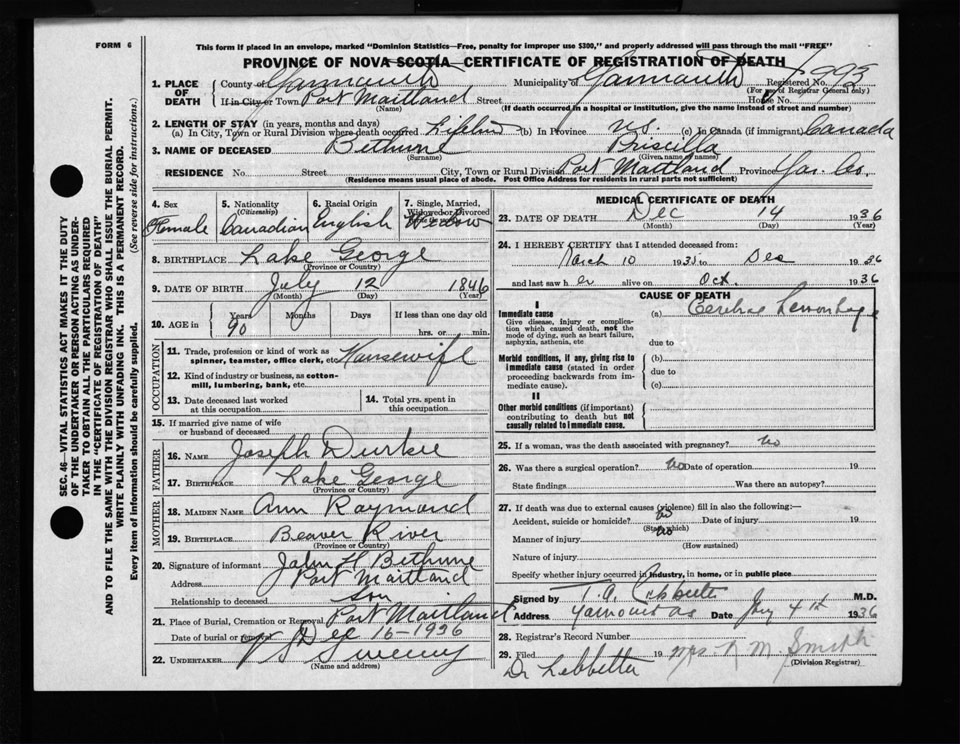 FORM 6
This form if placed in an envelope, marked "Dominion Statistics—Free, penalty for improper use $300," and properly addressed will pass through the mail "FREE"
PROVINCE OF NOVA SCOTIA—CERTIFICATE OF REGISTRATION OF DEATH
1. PLACE OF DEATH
County of Yarmouth Municipality of Yarmouth Registered No. 993
(For use of Registrar General only)
If in City or Town Port Maitland Street House No.
(Name) (If death occurred in a hospital or institution, give the name instead of street and number)
2. LENGTH OF STAY (in years, months and days)
(a) In City, Town or Rural Division where death occurred Lifetime (b) In Province N.S. (c) In Canada (if immigrant) Canada
3. NAME OF DECEASED Bethune Priscilla
(Surname) (Given name or names)
RESIDENCE No. Street City, Town or Rural Division Port Maitland Province Yar. Co.,
(Residence means usual place of abode. Post Office Address for residents in rural parts not sufficient)
4. Sex Female
5. Nationality (Citizenship) Canadian
6. Racial Origin English
7. Single, Married, Widowed or Divorced
Widow
8. BIRTHPLACE Lake George
(Province or Country)
9. DATE OF BIRTH July 12 1846
(Month) (Day) (Year)
10. AGE in Years Months Days If less than one day old
90 hrs. or min.
OCCUPATION
11. Trade, profession or kind of work as spinner, teamster, office clerk, etc. Housewife
12. Kind of industry or business, as cotton-mill, lumbering, bank, etc.
13. Date deceased last worked at this occupation
14. Total yrs. spent in this occupation
15. If married give name of wife or husband of deceased
FATHER
16. NAME Joseph Durkee
17. BIRTHPLACE Lake George
(Province or Country)
MOTHER
18. MAIDEN NAME Ann Raymond
19. BIRTHPLACE Beaver River
(Province or Country)
20. Signature of informant John H Bethune
Address Port Maitland
Relationship to deceased son
21. Place of Burial, Cremation or Removal Port Maitland
Date of burial or removal Dec 16-1936
22. UNDERTAKER Sweeny
(Name and address)
MEDICAL CERTIFICATE OF DEATH
23. DATE OF DEATH Dec 14 1936
(Month) (Day) (Year)
24. I HEREBY CERTIFY that I attended deceased from:
March 10 1935 to Dec 1936
and last saw her alive on Oct. 1936
CAUSE OF DEATH
I
Immediate cause (a) Cerebral Hemorrhage
Give disease, injury or complication which caused death, not the mode of dying, such as heart failure, asphyxia, asthenia, etc
due to
Morbid conditions, if any, giving rise to immediate cause (stated in order proceeding backwards from immediate cause).
(b)
due to
(c)
II
Other morbid conditions (if important) contributing to death but not causally related to immediate cause.
25. If a woman, was the death associated with pregnancy? No
26. Was there a surgical operation? No Date of operation 19
State findings Was there an autopsy?
27. If death was due to external causes (violence) fill in also the following:—
Accident, suicide or homicide? No Date of injury 19
(State which)
Manner of injury No
(How sustained)
Nature of injury
Specify whether injury occurred in industry, in home, or in public place
Signed by T.A. Lebbetter M.D.
Address Yarmouth NS Date Jny 4th 1936
28. Registrar's Record Number
29. Filed 19 Mrs. N M. Smith
(Division Registrar)
Dr Lebbetter
SEC. 46—VITAL STATISTICS ACT MAKES IT THE DUTY
OF THE UNDERTAKER OR PERSON ACTING AS UNDER-
TAKER TO OBTAIN ALL THE PARTICULARS REQUIRED
IN THE "CERTIFICATE OF REGISTRATION OF DEATH"
AND TO FILE THE SAME WITH THE DIVISION REGISTRAR WHO SHALL ISSUE THE BURIAL PERMIT.
WRITE PLAINLY WITH UNFADING INK. THIS IS A PERMANENT RECORD.
Every item of information should be carefully supplied. (See reverse side for instructions.)